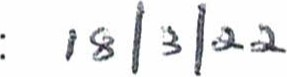 : 18/3/22